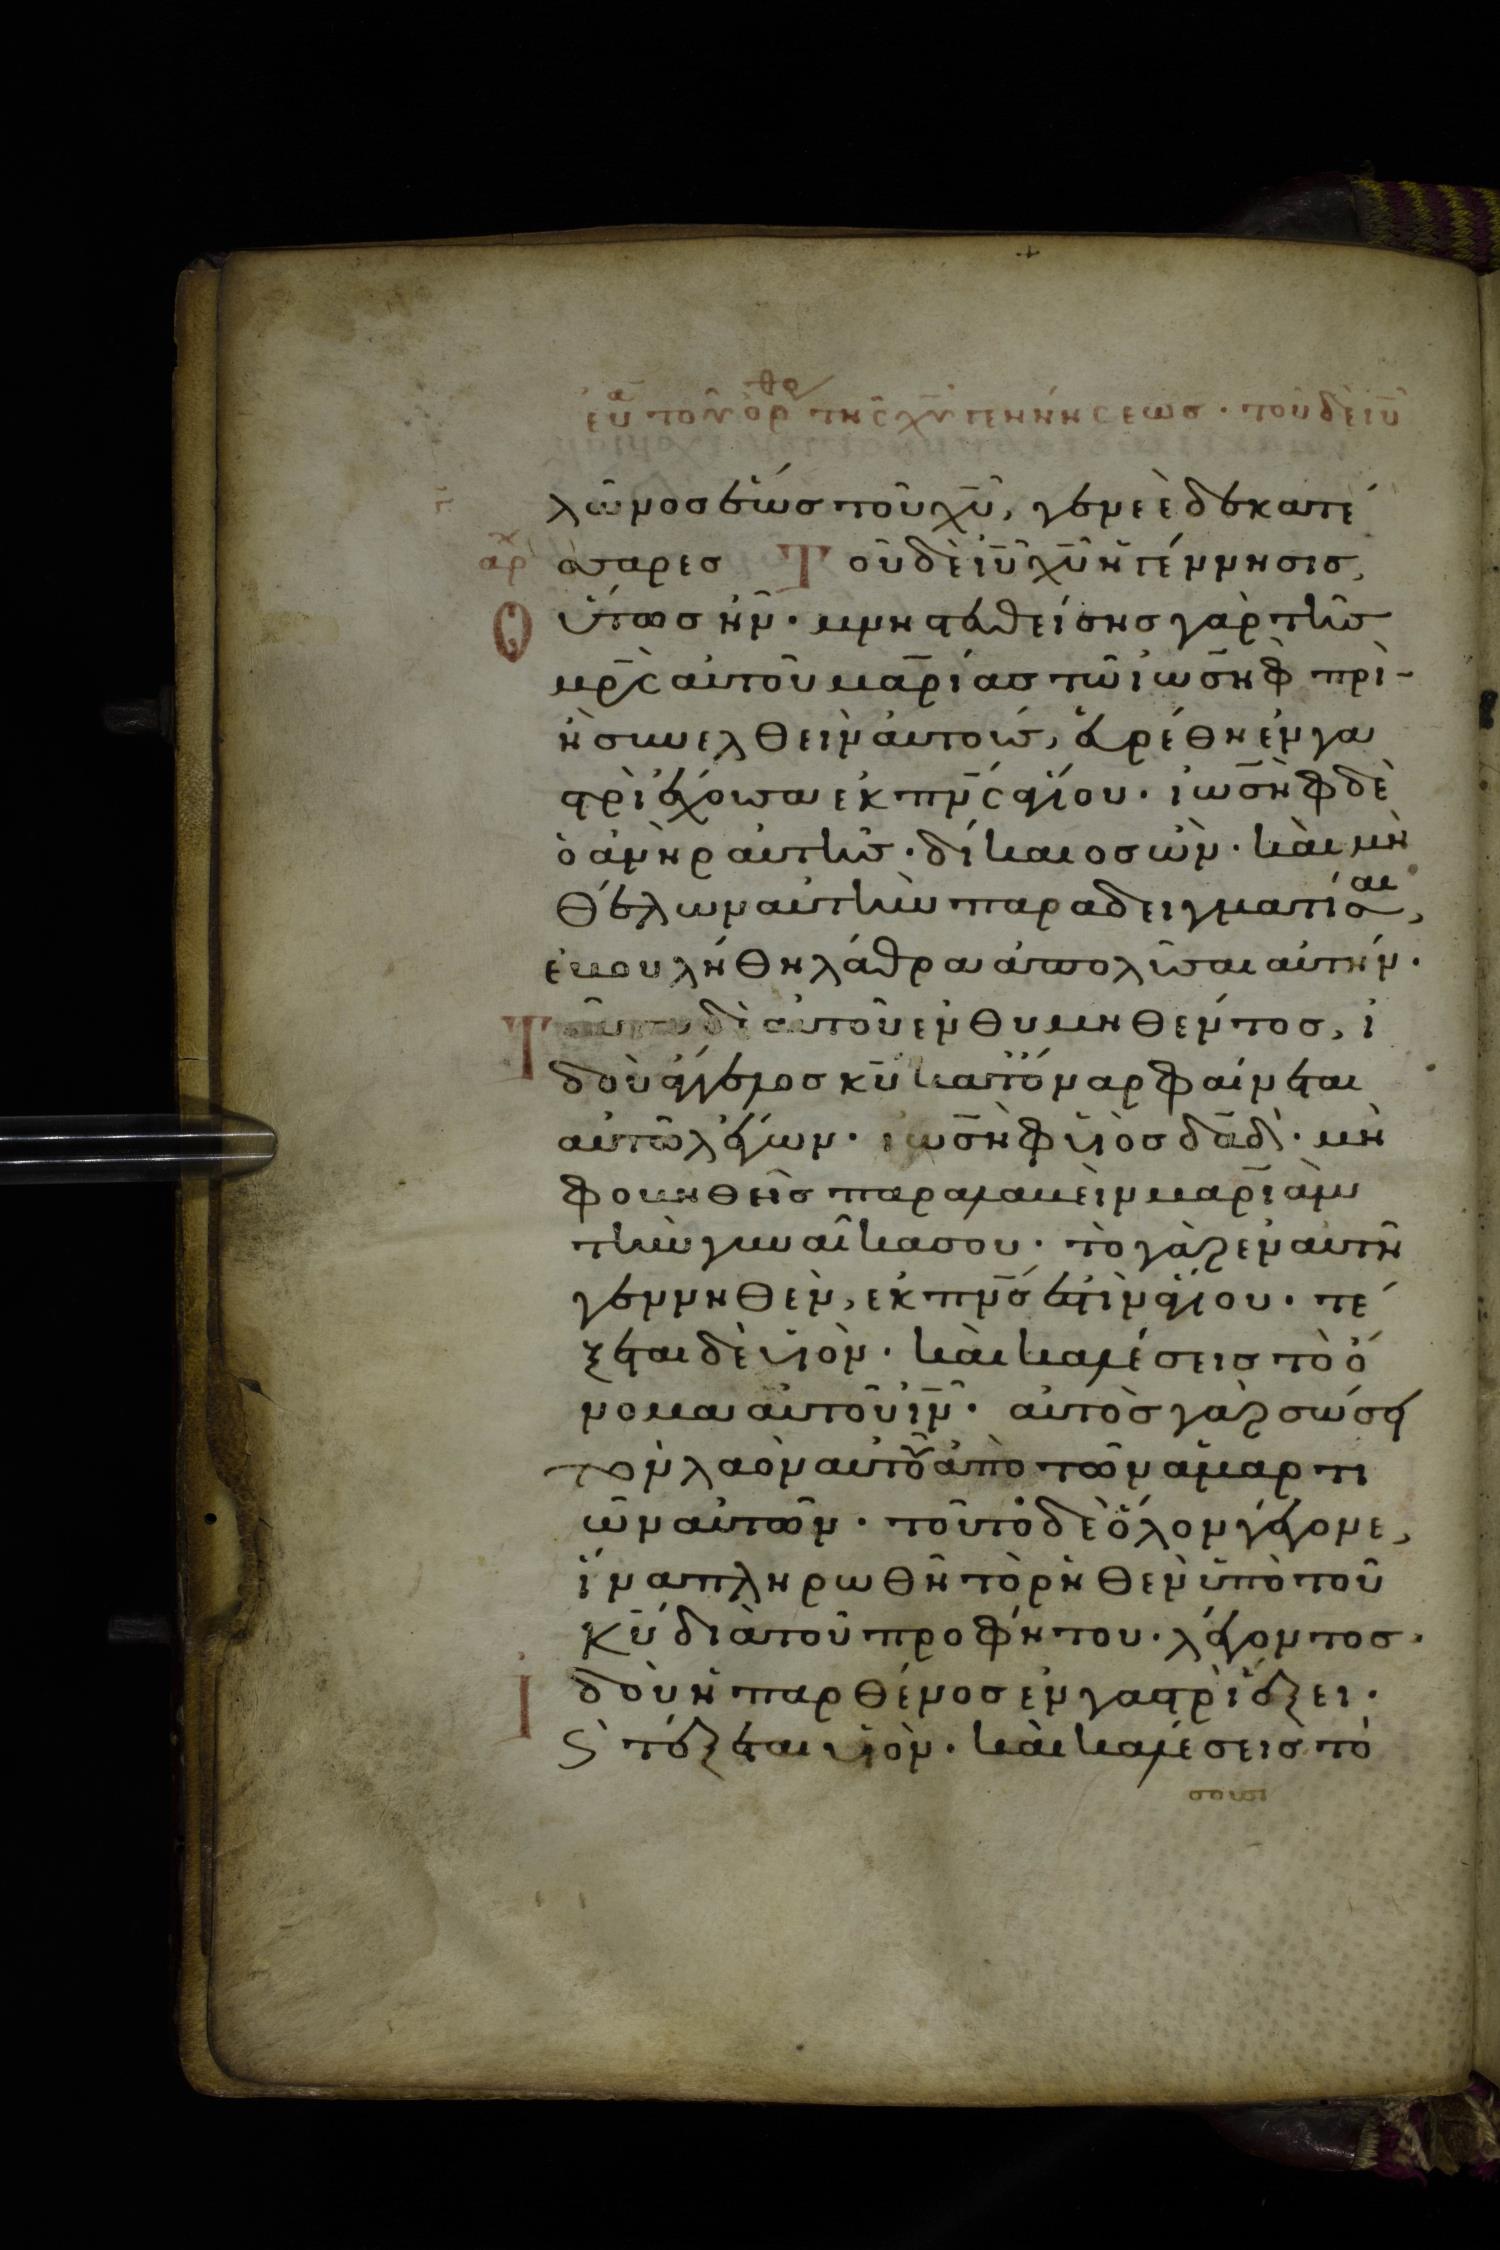 εὐα τοῦ ὄρθ τῆς χυ γεννήσεως · τοῦ δὲ ιυ
λῶνος ἕως τοῦ χυ, γενεὲ δεκατέ
αρχ σσαρες Τοῦ δὲ ιυ χυ ἡ γέννησις,
Οὕτως ἦν · μνηστευθείσης γὰρ τῆς
μρς αὐτοῦ μαρίας τῶ ἰωσὴφ πρὶν
ἢ συνελθεῖν αὐτούς, εὑρέθη ἐν γα
στρὶ ἔχουσα ἐκ πνς ἁγίου · ἰωσὴφ δὲ
ὁ ἀνὴρ αὐτῆς · δίκαιος ὢν · καὶ μὴ
θέλων αὐτὴν παραδειγματίσαι,
ἐβουλήθη λάθρα ἀπολῦσαι αὐτήν ·
Ταῦτα δὲ αὐτοῦ ἐνθυμηθέντος, ἰ
δοὺ ἄγγελος κυ κατ' ὄναρ φαίνεται
αὐτῶ λέγων · ἰωσὴφ υἱὸς δαδ · μὴ
φοβηθεῖς παραλαβεῖν μαριὰμ
τὴν γυναῖκα σου · τὸ γὰρ ἐν αὐτῆ
γεννηθὲν, ἐκ πνς ἐστὶν ἁγίου · τέ
ξεται δὲ υἱὸν · καὶ καλέσεις τὸ ὄ
νομα αὐτοῦ ιν · αὐτὸς γὰρ σώσει
τὸν λαὸν αὐτοῦ ἀπὸ τῶν ἁμαρτι
ῶν αὐτῶν · τοῦτο δὲ ὅλον γέγονε,
ἵνα πληρωθῆ τὸ ῥηθὲν ὑπὸ τοῦ
κυ διὰ τοῦ προφήτου · λέγοντος ·
Ἰδοὺ ἡ παρθένος ἐν γαστρὶ ἕξει ·
ϗ τέξεται υἱὸν · καὶ καλέσεις τὸ